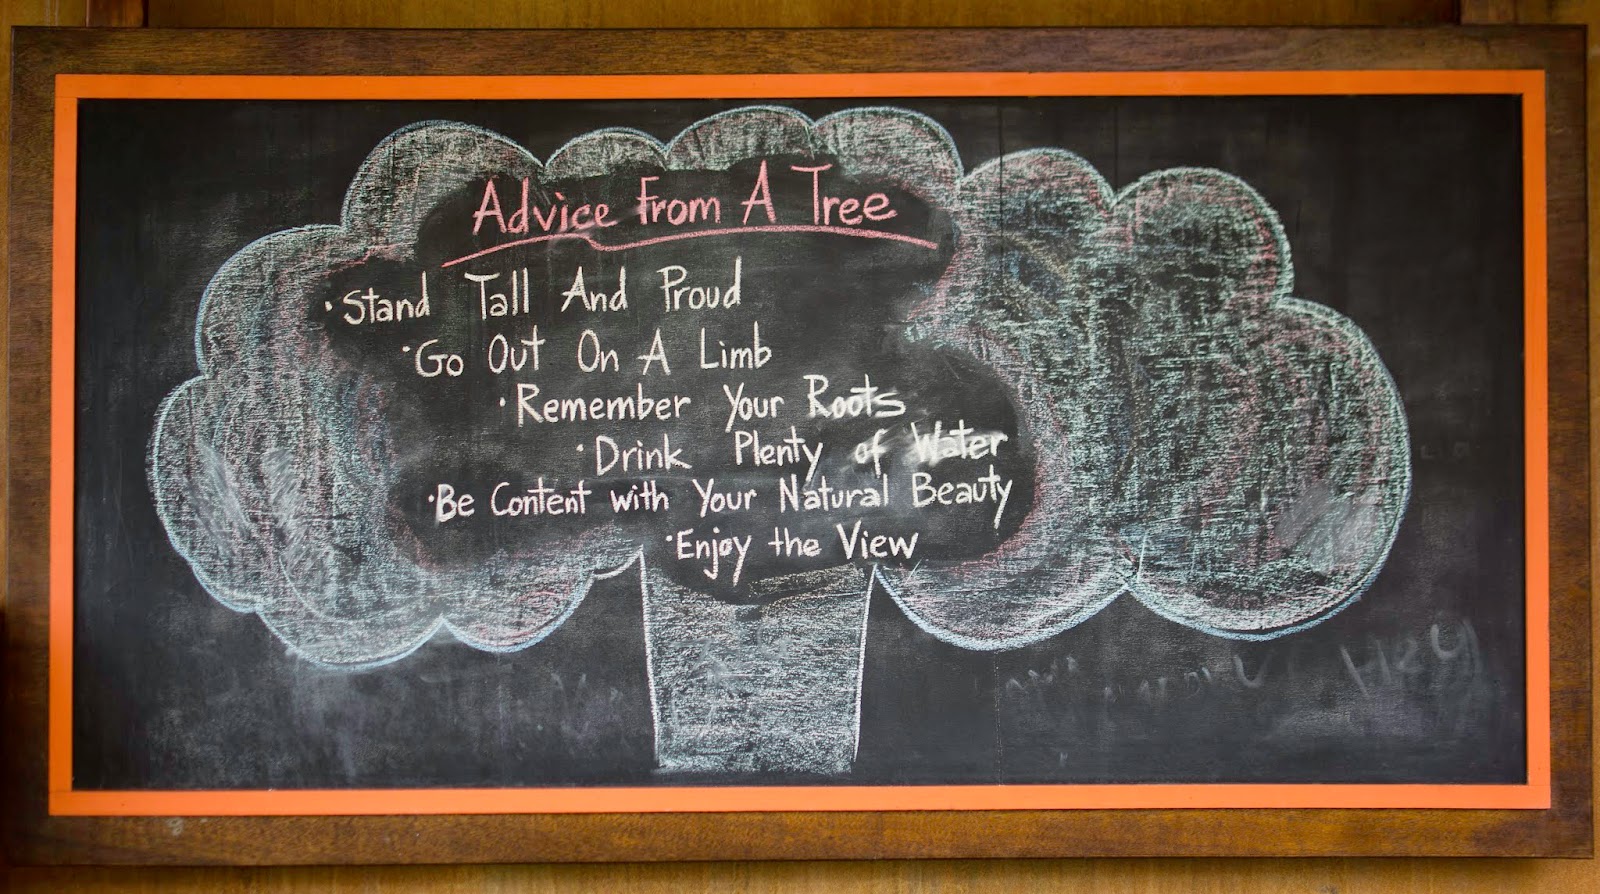 Advice From A Tree
· Stand Tall And Proud
· Go Out On A Limb
· Remember Your Roots
· Drink Plenty of Water
· Be Content with Your Natural Beauty
· Enjoy the View
Hey